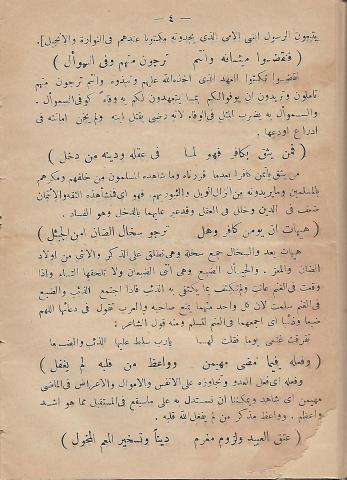 — ٤ —
يتبعون الرسول النبى الأمى الذى يجدونه مكتوبا عندهم فى التوراة والانجيل].
( فنقضوا ميثاقه وأنتم ترجون منهم وفى السموأل )
نقضوا نكثوا العهد الذى اخذه الله عليهم ونبذوه وأنتم ترجون منهم
تأملون وتريدون ان يوفوا لكم بما يتعهدون لكم به وفاء كوفى السموأل.
والسموأل به يضرب المثل فى الوفاء لانه رضى بقتل ابنه ولم يخن امانته فى
ادراع اودعها.
( فمن يثق بكافر فهو لما فى عقله ودينه من دخل )
من يثق يأتمن كافرا بعدما قررناه وما شاهده المسلمون من خلفهم ومكرهم
بالمسلمين وما يريدونه من انزال الويل والثبور بهم. فهو اى فمنشأ هذه الثقة والائتمان
ضعف فى الدين وخلل فى العقل وقد عبر عليهما بالدخل وهو الفساد.
( هيهات ان يومن كافر وهل ترجو سخال الضان امن الجيئل )
هيهات بعد والسخال جمع سخلة وهى تطلق على الذكر والانثى من اولاد
الضان والمعز. والجيأل الضبع وهى انثى الضبعان ولا تلحقها التاء واذا
وقعت فى الغنم عاثت ولم تكتف بما يكتفى به الذئب فاذا اجتمع الذئب والضبع
فى الغنم سلمت لان كل واحد منهما يمنع صاحبه والعرب تقول فى دعائها اللهم
ضبعا وذئبا اى اجمعهما فى الغنم لتسلم ومنه قول الشاعر:
تفرقت غنمى يوما فقلت لهـا يارب سلط عليها الذئب والضبـعا
( وفعله فيما مضى مهيمن وواعظ من قلبه لم يغفل )
وفعله اى فعل العدو وتجاوزه على الانفس والاموال والاعراض فى الماضى
مهيمن اى شاهد ويمكننا ان نستدل به على ماسيقع فى المستقبل مما هو اشد
واعظم. وواعظ مذكر من لم يغفل الله قلبه.
( عتق العبيد ولزوم مغرم ديناً وتسخير المعم المخول )